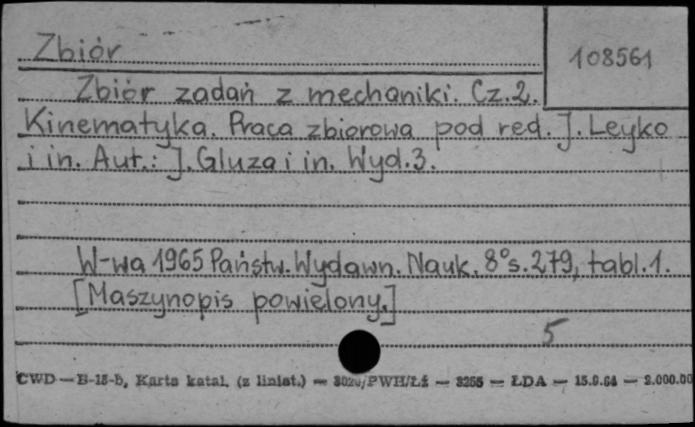 Zbiór
108561
Zbiór zadań z mechaniki. Cz.2.
Kinematyka. Praca zbiorowa pod red. J. Leyko
i in. Aut.: J. Gluza i in. Wyd.3.
W-wa 1965 Państw. Wydawn. Nauk. 8° s. 279, tabl. 1.
[Maszynopis powielony.]
5
CWD — B-15-b, Karta katal. (z liniat.) — PWH/Łź — 3255 — ŁDA — 15.9.64 — 2.000.00